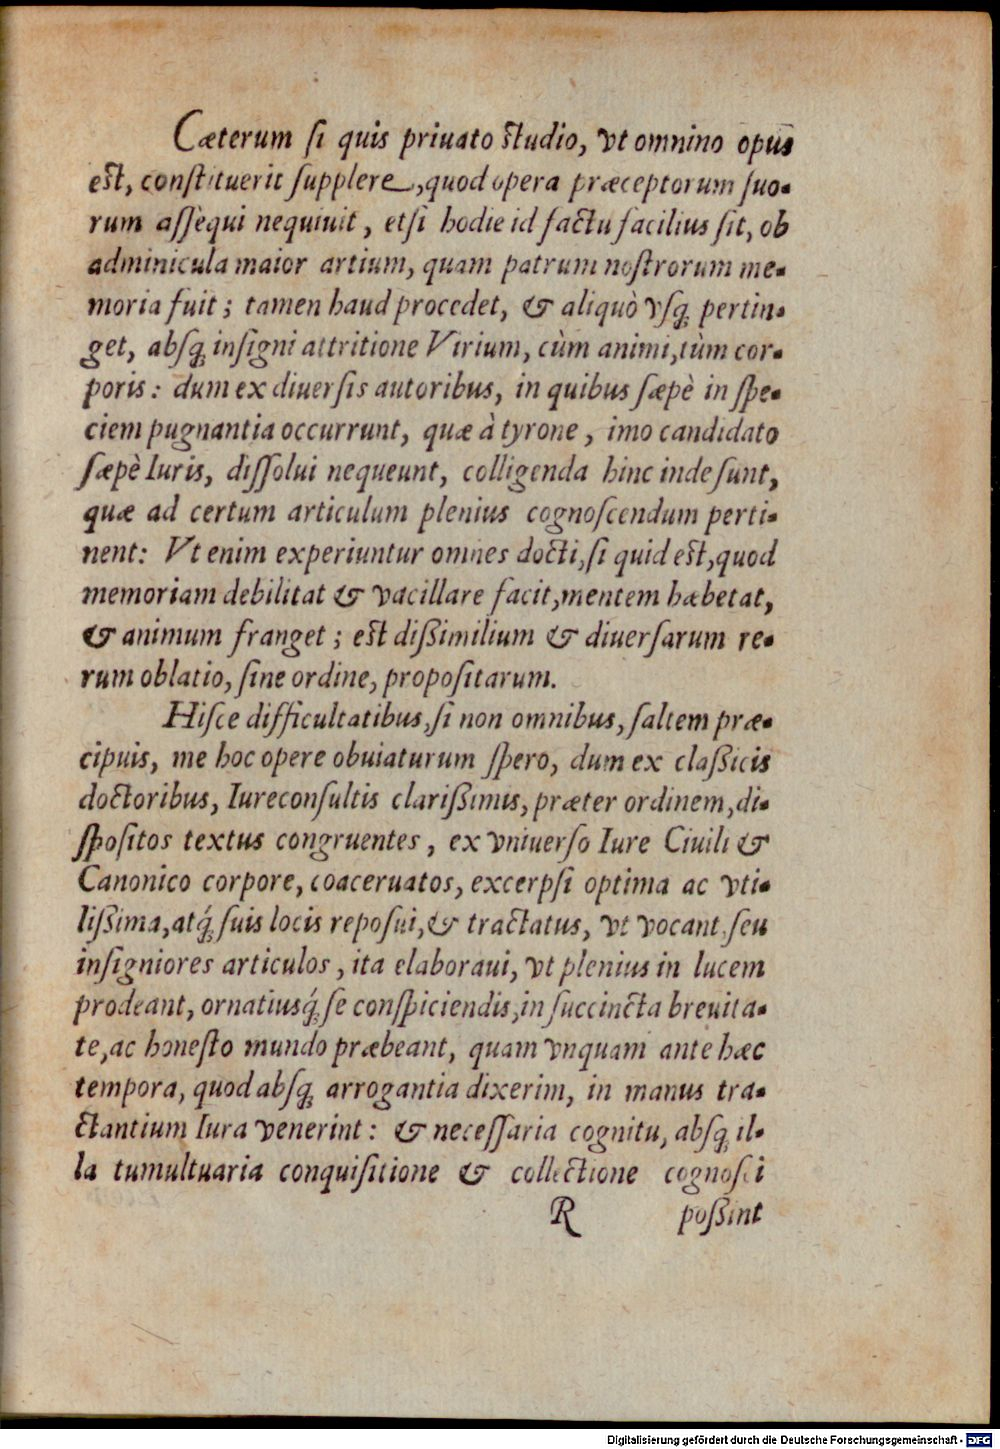 Cæterum ſi quis priuato ſtudio, vt omnino opus
eſt, conſtituerit ſupplere, quod opera præceptorum ſuo-
rum aſſèqui nequiuit, etſi hodie id factu facilius ſit, ob
adminicula maior artium, quam patrum noſtrorum me-
moria fuit; tamen haud procedet, & aliquò vſq́ pertin-
get, abſq́ inſigni attritione Virium, cùm animi, tùm cor-
poris: dum ex diuerſis autoribus, in quibus ſæpè in ſpe-
ciem pugnantia occurrunt, quæ à tyrone, imo candidato
ſæpè Iuris, diſſolui nequeunt, colligenda hinc inde ſunt,
quæ ad certum articulum plenius cognoſcendum perti-
nent: Vt enim experiuntur omnes docti, ſi quid eſt, quod
memoriam debilitat & vacillare facit, mentem hæbetat,
& animum franget; eſt dißimilium & diuerſarum re-
rum oblatio, ſine ordine, propoſitarum.
Hiſce difficultatibus, ſi non omnibus, ſaltem præ-
cipuis, me hoc opere obuiaturum ſpero, dum ex claßicis
doctoribus, Iureconſultis clarißimis, præter ordinem, di-
ſpoſitos textus congruentes, ex vniuerſo Iure Ciuili &
Canonico corpore, coaceruatos, excerpſi optima ac vti-
lißima, atq́ ſuis locis repoſui, & tractatus, vt vocant, ſeu
inſigniores articulos, ita elaboraui, vt plenius in lucem
prodeant, ornatiusq́ ſe conſpiciendis, in ſuccincta breuita-
te, ac honeſto mundo præbeant, quam vnquam ante hæc
tempora, quod abſq́ arrogantia dixerim, in manus tra-
ctantium Iura venerint: & neceſſaria cognitu, abſq́ il-
la tumultuaria conquiſitione & collectione cognoſci
R poßint
Digitalisierung gefördert durch die Deutsche Forschungsgemeinschaft - DFG